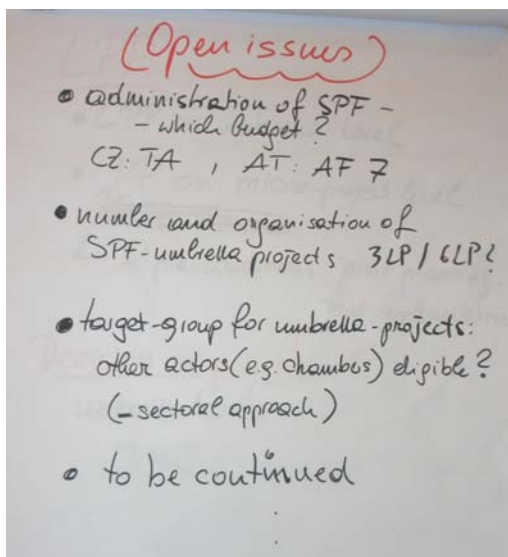 (Open issues)
• administration of SPF -
- which budget?
CZ: TA , AT: AF 7
• number and organisation of
SPF-umbrella projects 3LP / 6LP?
• target-group for umbrella-projects:
other actors (e.g. chambers) eligible?
(- sectoral approach)
• to be continued